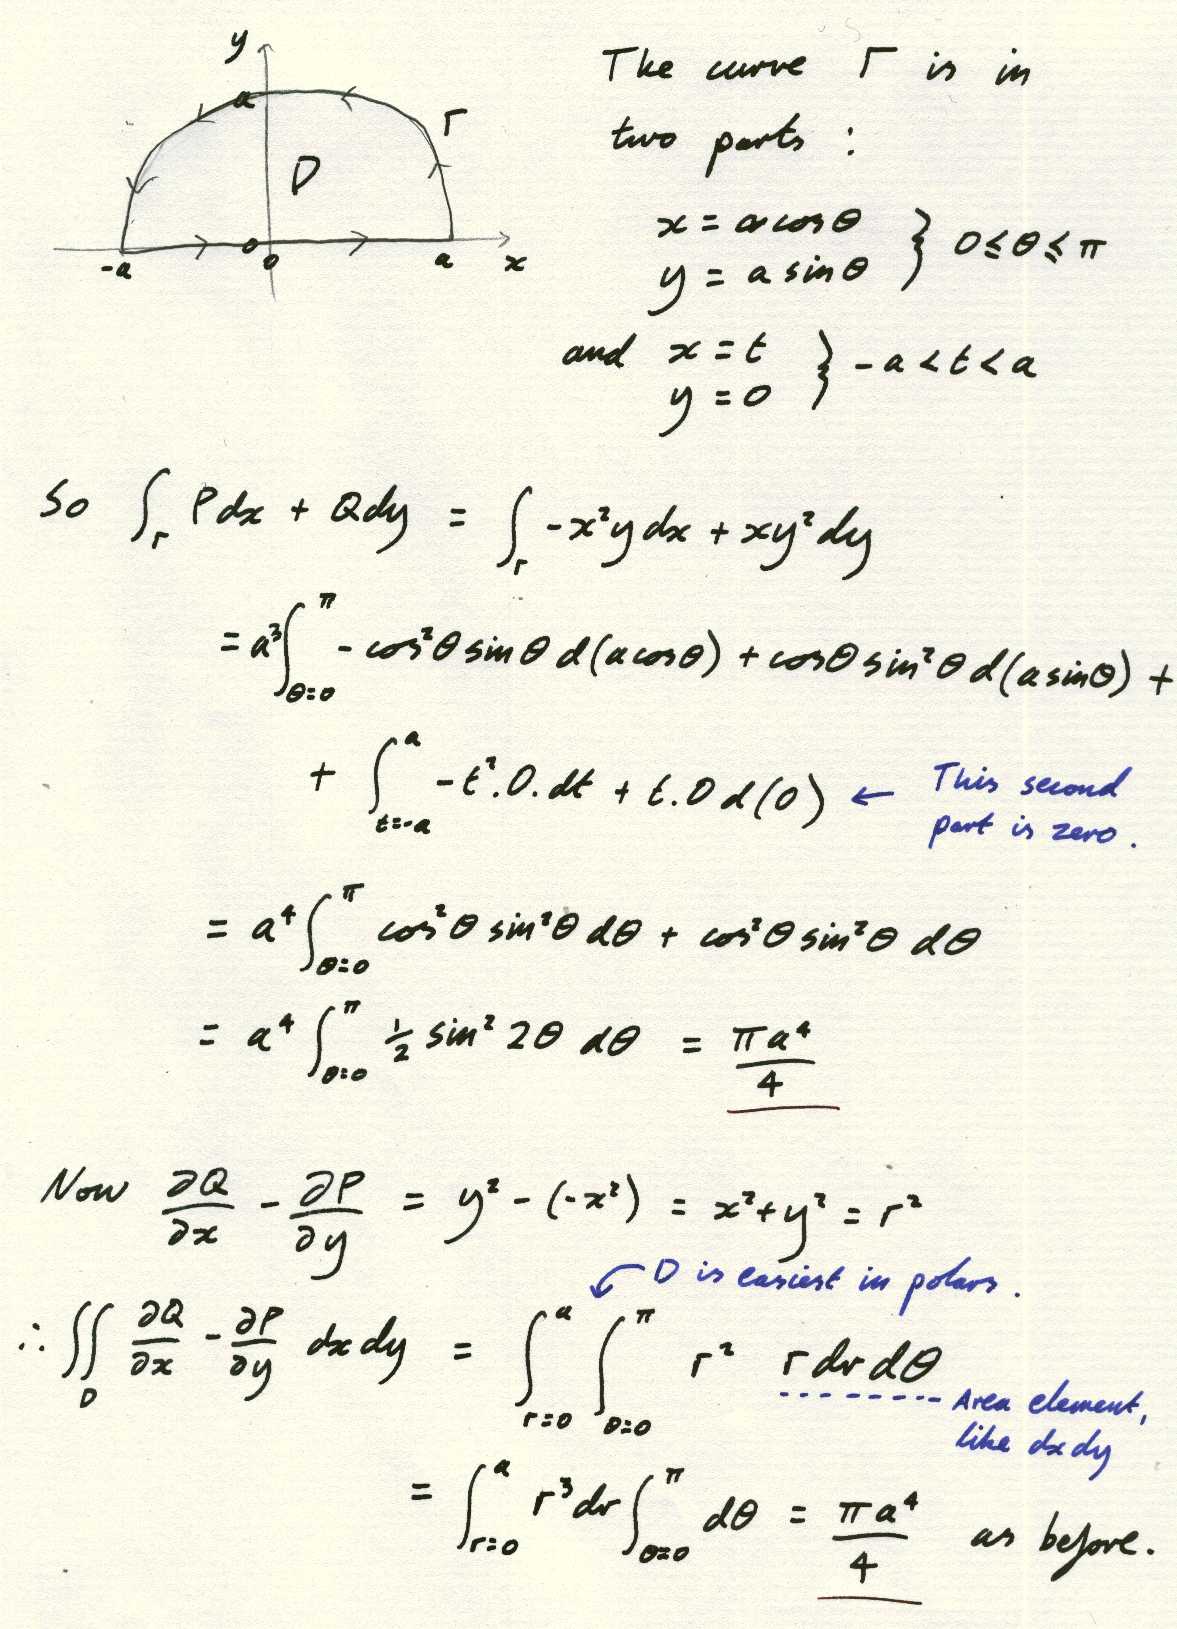 y
a
Γ
D
-a
0
0
a
x
The curve Γ is in
two parts :
x = a cosθ
y = a sinθ } 0≤θ≤π
and x = t
y = 0 } -a < t < a
So ∫_Γ Pdx + Qdy = ∫_Γ -x²y dx + xy² dy
= a³ ∫_{θ=0}^{π} - cos²θ sinθ d(a cosθ) + cosθ sin²θ d(a sinθ) +
+ ∫_{t=-a}^{a} -t².0.dt + t.0 d(0) ← This second
part is zero.
= a⁴ ∫_{θ=0}^{π} cos²θ sin²θ dθ + cos²θ sin²θ dθ
= a⁴ ∫_{θ=0}^{π} ½ sin² 2θ dθ = πa⁴/4
Now ∂Q/∂x - ∂P/∂y = y² - (-x²) = x²+y² = r²
D is easiest in polars.
∴ ∬_D ∂Q/∂x - ∂P/∂y dx dy = ∫_{r=0}^{a} ∫_{θ=0}^{π} r² r dr dθ
Area element,
like dx dy
= ∫_{r=0}^{a} r³ dr ∫_{θ=0}^{π} dθ = πa⁴/4 as before.